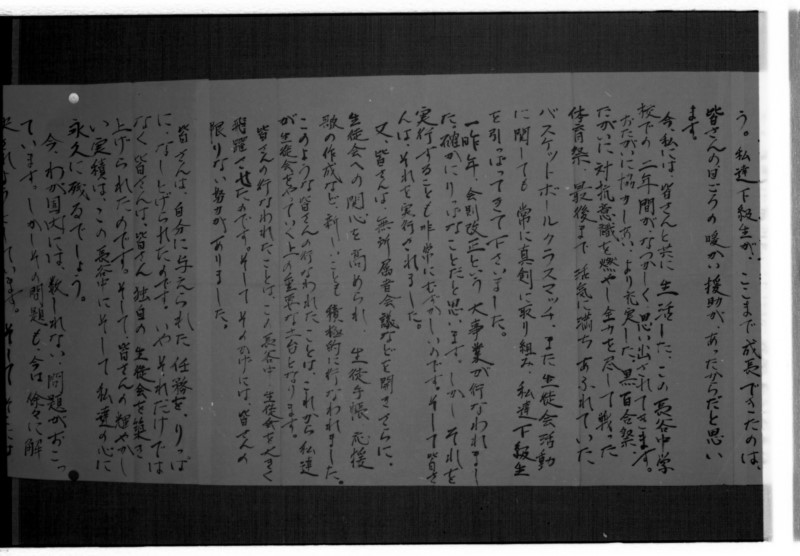 う。私達下級生が、ここまで成長できたのは、
皆さんの日ごろの暖かい援助が、あったからだと思い
ます。
今私には、皆さんと共に生活した、この長谷中学
校での二年間が、なつかしく思い出されてきます。
おたがいに協力し合い、より充実した、黒百合祭、
たがいに対抗意識を燃やし全力を尽して戦った
体育祭、最後まで活気に満ちあふれていた
バスケットボールクラスマッチ、また生徒会活動
に関しても常に真剣に取り組み、私達下級生
を引っぱってきて下さいました。
一昨年、会則改正という大事業が行なわれまし
た。確かにりっぱなことだと思います。しかしそれを
実行することも非常にむずかしいのです。そして皆さ
んは、それを実行されました。
又、皆さんは、無所属者会議などを開きさらに、
生徒会への関心を高められ、生徒手帳、応援
歌の作成など、新しいことを積極的に行なわれました。
このような皆さんの行なわれたことは、これから私達
が生徒会をやっていく上の重要な土台となります。
皆さんの行なわれたことは、この長谷中、生徒会を大きく
飛躍させたのです。そしてそのかげには、皆さんの
限りない努力がありました。
皆さんは、自分に与えられた任務を、りっぱ
に、なしとげられたのです。いやそれだけでは
なく皆さんは、皆さん独自の生徒会を築き
上げられたのです。そして、皆さんの輝やかし
い実績は、この長谷中にそして私達の心に
永久に残るでしょう。
今、わが国内には、数しれない問題がおこっ
ています。しかしその問題も、今は徐々に解
決されようとしています。そして